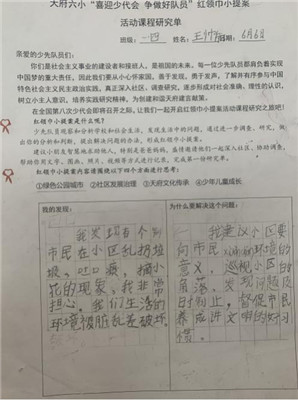 天府六小“喜迎少代会 争做好队员”红领巾小提案
活动课程研究单
班级：一四 姓名：王 日期：6月6日
亲爱的少先队员们：
你们是社会主义事业的建设者和接班人，是祖国的未来。每一位少先队员都肩负着实现
中国梦的重大责任。因此我们要从小心怀家国，善于发现，勇于发声，了解并有序参与中国
特色社会主义民主政治实践。真正深入社区，调查研究，逐步形成对社会准确、理性的认识，
树立小主人意识，培养实践研究精神，为创建和谐天府建言献策。
在全国第八次少代会即将召开之际，让我们一起开启红领巾小提案活动课程研究之旅吧！
红领巾小提案是什么呢？
少先队员观察和分析学校和社会生活，发现生活中的问题，通过进一步调查、研究，提
出你的分析和判断，提出解决问题的办法，形成红领巾小提案。
建议小队员独立或分小组去完成，特别是爸爸妈妈，
帮助你用文字、图画、照片、视频等方式进行记录，完成第一份研究单。
红领巾小提案内容请围绕以下四个方面进行思考：
①绿色公园城市 ②社区发展治理 ③天府文化传承 ④少年儿童成长
我的发现：
我发现有个别
市民在小区乱扔垃
圾、吐口痰、摘小
花的现象，我非常
担心，我们生活的
环境被脏乱差破坏。
为什么要解决这个问题：
一、我建议小区要
向市民 环境的
意义，巡视小区的
角落，发现问题及
时制止，督促市民
养成讲文明的好习
惯。